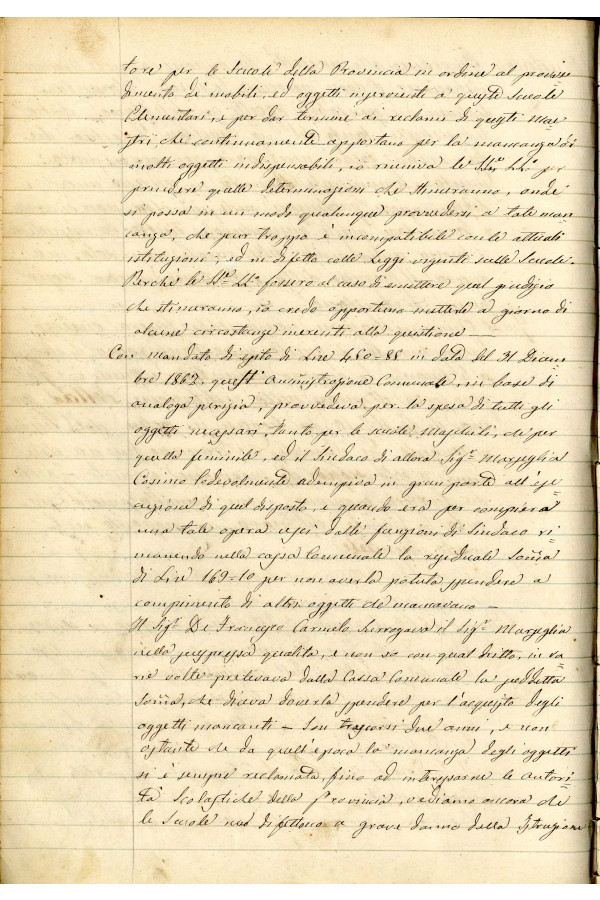 tore per le Scuole della Provincia in ordine al provve=
dimento di mobili, ed oggetti inservienti a queste Scuole
Elementari, e per dar termine ai reclami di questi Mae=
stri che continuamente apportano per la mancanza di
molti oggetti indispensabili, io riuniva le SS.e LL.e per
prendere quelle determinazioni che stimeranno, onde
si possa in un modo qualunque provvedersi a tale man=
canza, che pur troppo è incompatibile con le attuali
istituzioni, ed in difetto colle Leggi vigenti sulle Scuole.
Perchè le SS.e LL.e fossero al caso di emettere quel giudizio
che stimeranno, io credo opportuno metterle a giorno di
alcune circostanze inerenti alla quistione —
Con mandato di esito di Lire 480=88 in data del 31 Dicem=
bre 1862, quest'Amministrazione Comunale, in base di
analoga perizia, provvedeva per la spesa di tutti gli
oggetti necessari, tanto per le scuole Maschili, che per
quella feminile, ed il Sindaco di allora Sig.r Marzeglia
Cosimo lodevolmente adempiva in gran parte all'ese=
cuzione di quel disposto, e quando era per compiersi
una tale opera uscì dalle funzioni di Sindaco ri=
manendo nella cassa Comunale la residuale Somma
di Lire 169=10 per non averla potuta spendere a
compimento di altri oggetti che mancavano —
Il Sig.r De Francesco Carmelo surrogava il Sig.r Marzeglia
nella suespressa qualità, e non so con qual dritto, in va=
rie volte prelevava dalla Cassa Comunale la suddetta
Somma, che diceva doverla spendere per l'acquisto degli
oggetti mancanti — Son trascorsi due anni, e non
ostante che da quell'epoca la mancanza degli oggetti
si è sempre reclamata, fino ad interessarne le Autori=
tà Scolastiche della Provincia, vediamo ancora che
le Scuole ne difettano a grave danno della Istruzione